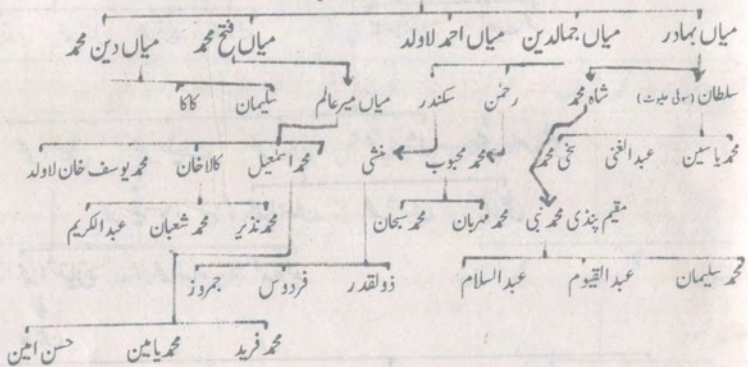 میاں بہادر میاں جمالدین میاں احمد لاولد میاں فتح محمد میاں دین محمد
سلطان (سولی علیوٹ) شاہ محمد رحمٰن سکندر میاں میر عالم سلیمان کاکا
محمد یاسین عبدالغنی سخی محمد محمد محبوب منشی محمد اسمٰعیل کالا خان محمد یوسف خان لاولد
مقیم پنڈی محمد نبی محمد مہربان محمد سبحان محمد نذیر محمد شعبان عبدالکریم
محمد سلیمان عبدالقیوم عبدالسلام ذولقدر فردوس جمروز
محمد فرید محمد یامین حسن امین